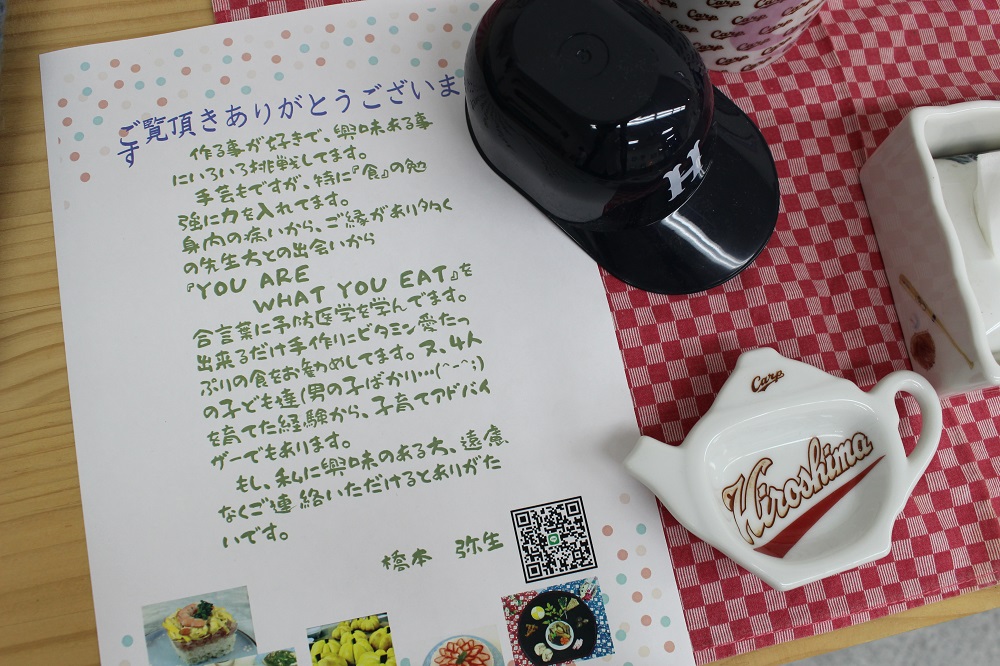 ご覧頂きありがとうございま
す
作る事が好きで、興味ある事
にいろいろ挑戦してます。
手芸もですが、特に『食』の勉
強に力を入れてます。
身内の病いから、ご縁があり多く
の先生方との出会いから
『YOU ARE
WHAT YOU EAT』を
合言葉に予防医学を学んでます。
出来るだけ手作りにビタミン愛たっ
ぷりの食をお勧めしてます。又、4人
の子ども達(男の子ばかり…(^-^;)
を育てた経験から、子育てアドバイ
ザーでもあります。
もし、私に興味のある方、遠慮
なくご連絡いただけるとありがた
いです。
橋本 弥生
H
Carp
Hiroshima
Carp